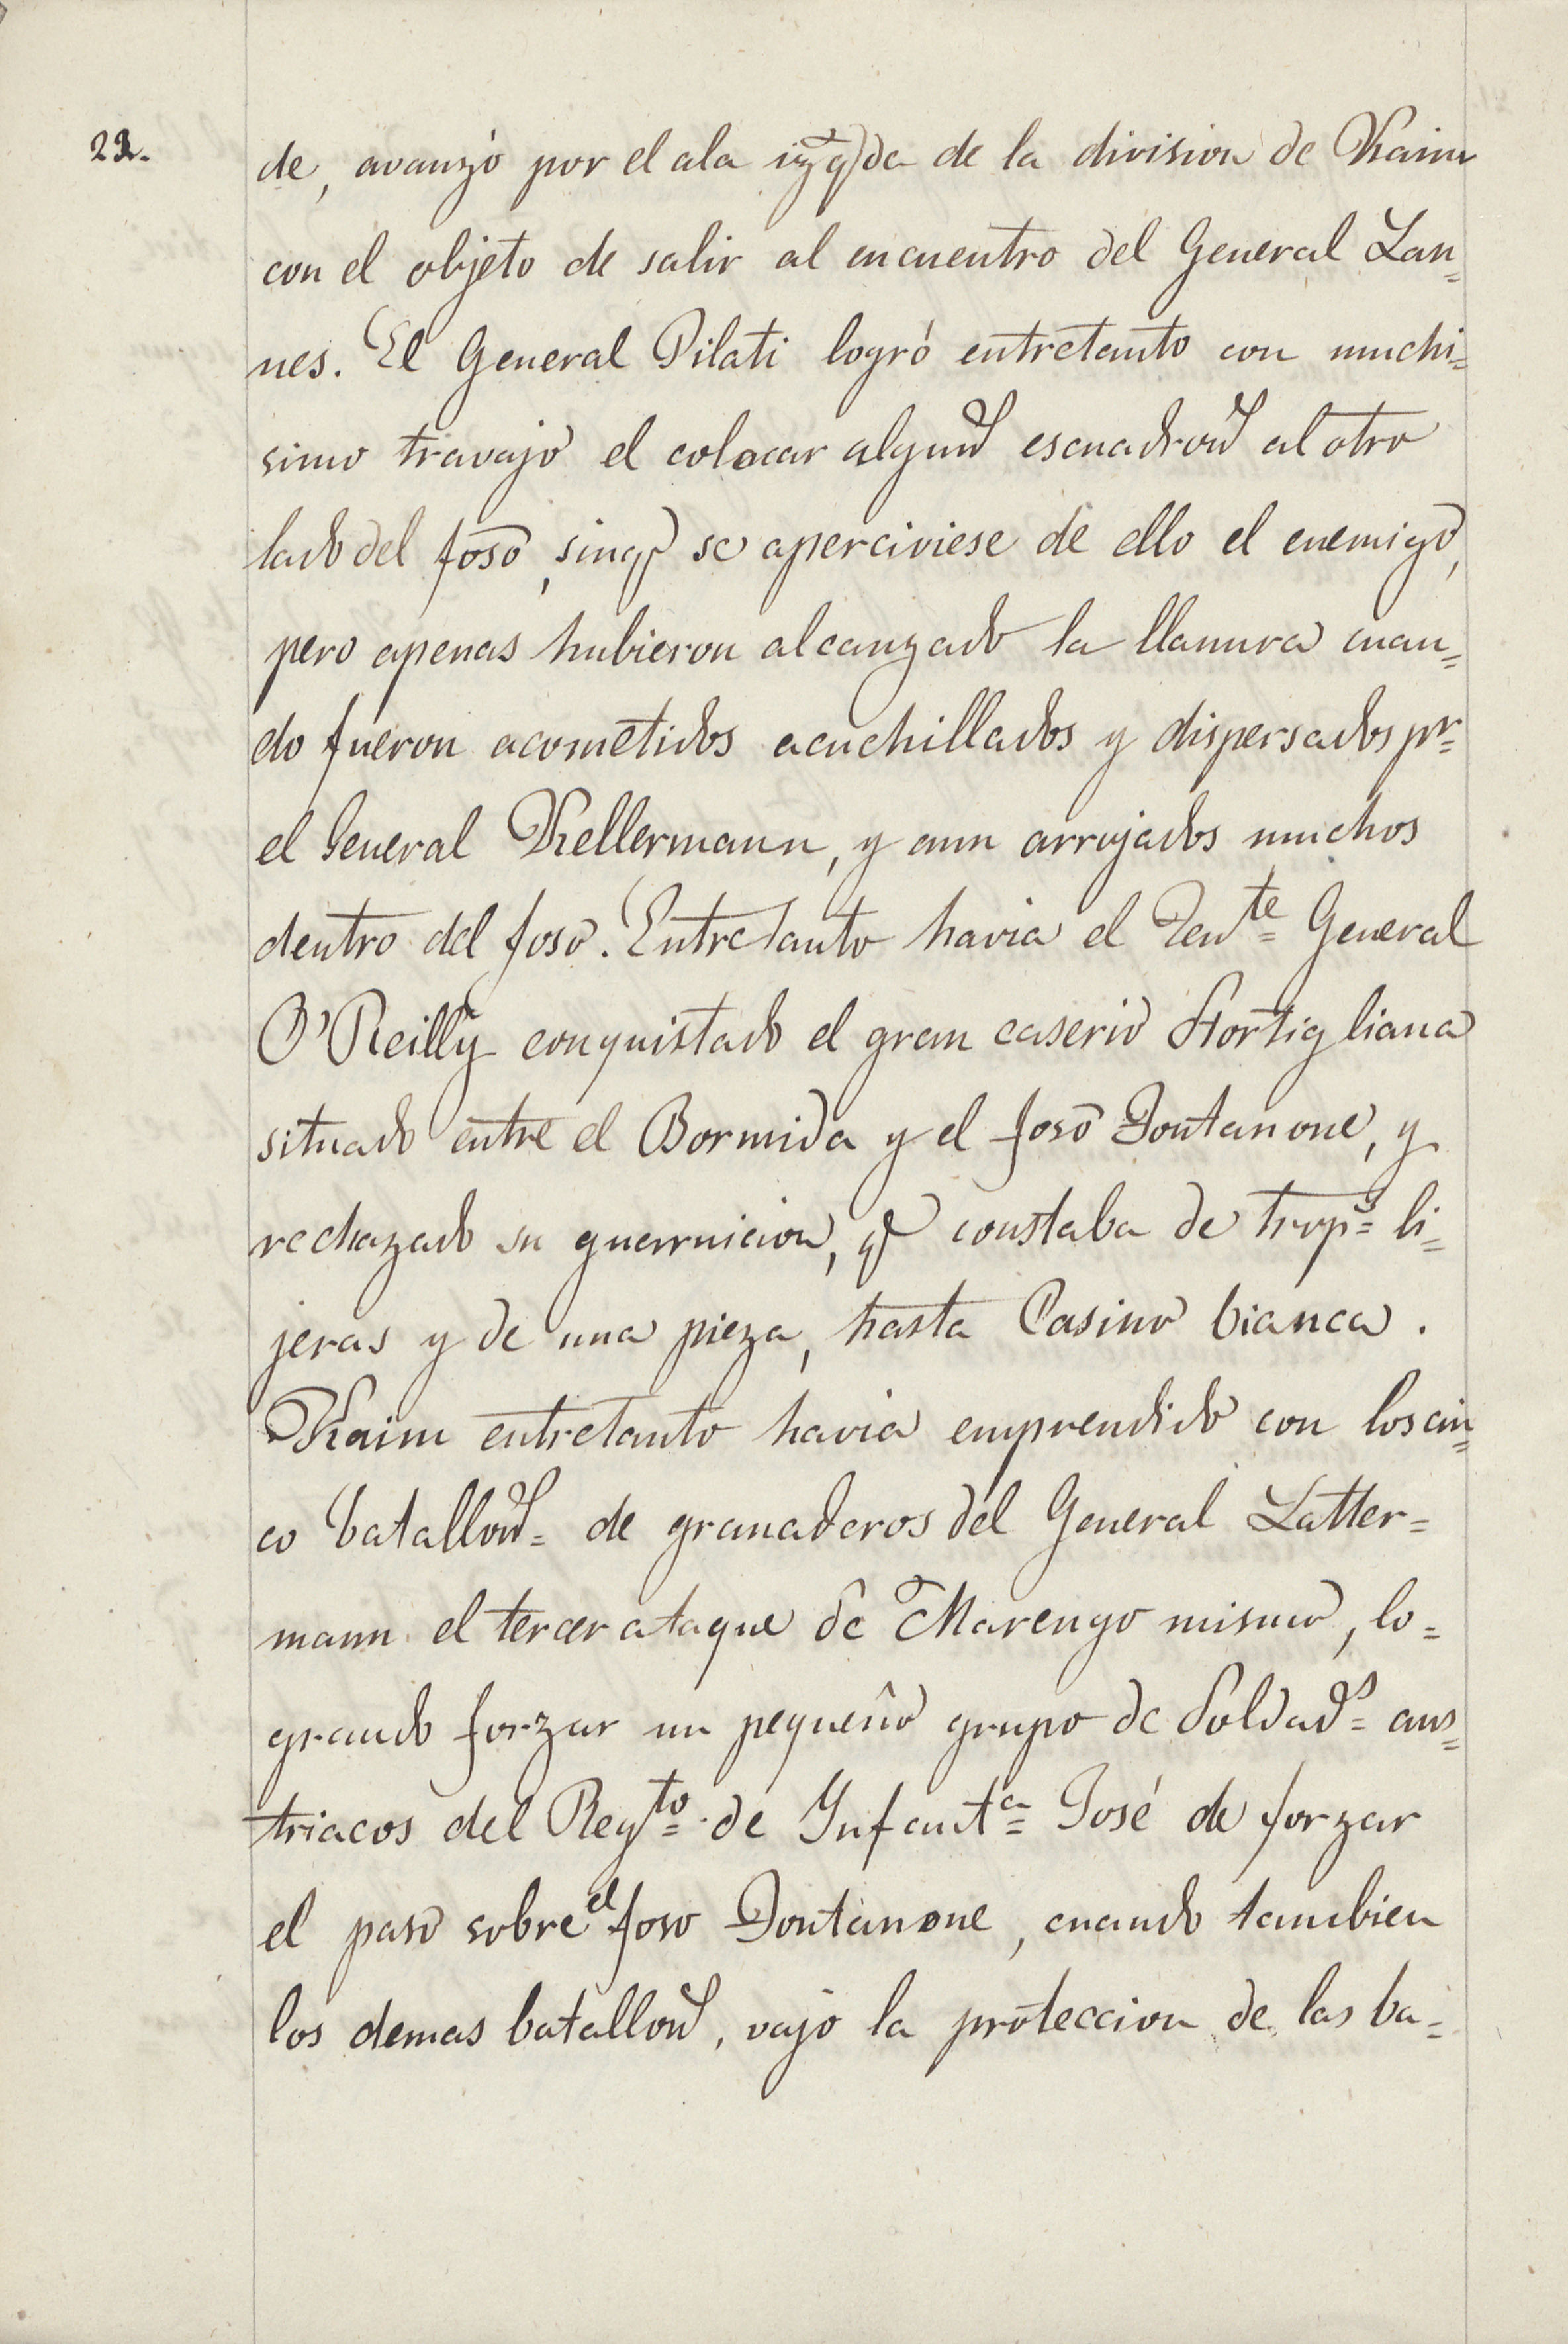 22.
de, avanzó por el ala izqda de la division de Kaim
con el objeto de salir al encuentro del General Lan=
nes. El General Pilati logró entretanto con muchi=
simo travajo el colocar alguns escuadrons al otro
lado del foso, sinq se aperciviese de ello el enemigo,
pero apenas hubieron alcanzado la llanura cuan=
do fueron acometidos acuchillados y dispersados pr=
el General Kellermann, y aun arrojados muchos
dentro del foso. Entretanto havia el Tente= General
O'Reilly conquistado el gran caserio Stortigliana
situado entre el Bormida y el foso Fontanone, y
rechazado su guarnicion, q constaba de trops= li=
jeras y de una pieza, hasta Casino bianca.
Kaim entretanto havia emprendido con los cin=
co batallons= de granaderos del General Latter=
mann el tercer ataque de Marengo mismo, lo=
grando forzar un pequeño grupo de Soldads= aus=
triacos del Regto= de Infanta= José de forzar
el paso sobre el foso Fontanone, cuando tambien
los demas batallons, vajo la proteccion de las ba=